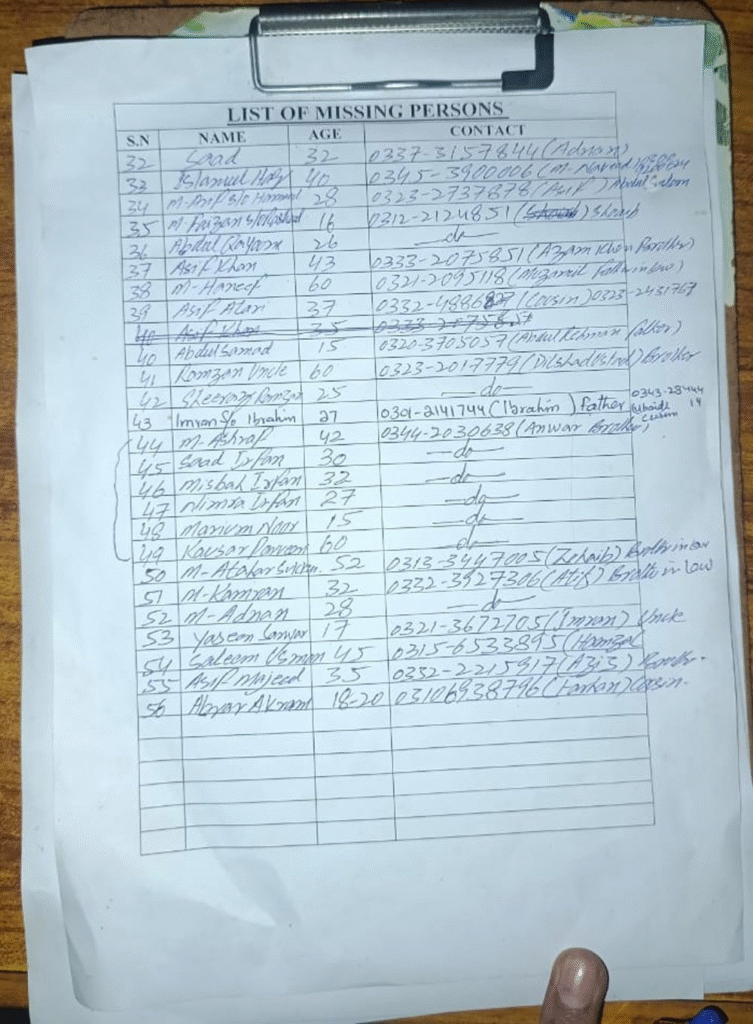 LIST OF MISSING PERSONS
S.N NAME AGE CONTACT
32 Saad 32 0337-3157844 (Adnan)
33 Islamul Haq 40 0345-3900006 (M-Naveed)
34 M-Arif S/o Hammad 28 0323-2737878 (Asif) Abdul Salam
35 M-Faizan S/o 16 0312-2124851 (Shoaib) Shoaib
36 Abdul 26 —do—
37 Asif Khan 43 0333-2075851 (Azam Khan Brother)
38 M-Haneef 60 0321-2095118 (Father in law)
39 Asif 37 0332- (Cousin) 0323-2431767
40 Asif Khan 35
40 Abdul Samad 15 0320-3705057 (Abdul Rehman father)
41 Ramzan Uncle 60 0323-2017779 (Dilshad Ustad) Brother
42 Ramzan 25 —do—
43 Imran S/o Ibrahim 27 0301-2141744 (Ibrahim) father 0343-
44 M-Ashraf 42 0344-2030638 (Anwar Brother)
45 Saad Irfan 30 —do—
46 Misbah Irfan 32 —do—
47 Nimra Irfan 27 —do—
48 Marium Noor 15 —do—
49 Kausar Parveen 60 —do—
50 M- 52 0313-3447005 (Zohaib) Brother in law
51 M-Kamran 32 0332-3927306 (Atif) Brother in Law
52 M-Adnan 28 —do—
53 Yaseen 17 0321-3672705 (Imran) Uncle
54 Saleem Usman 45 0315-6533895 (Hamza)
55 Asif Majeed 35 0332-2215917 (Aziz) Brother-
56 Akram 18-20 03106938796 (Farhan) Cousin-